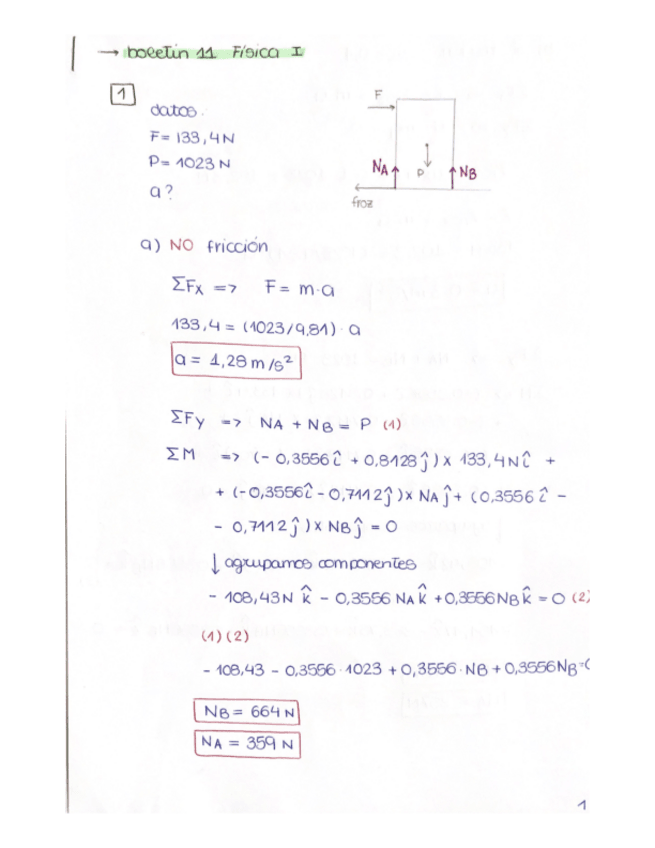 → boletín 11 Física I
1
datos:
F = 133,4 N
P = 1023 N
a?
F
NA
P
NB
froz
a) NO fricción
ΣFx => F = m·a
133,4 = (1023/9,81)·a
a = 1,28 m/s²
ΣFy => NA + NB = P (1)
ΣM => (- 0,3556 î + 0,8128 ĵ) x 133,4 N î +
+ (-0,3556 î - 0,7112 ĵ) x NA ĵ + (0,3556 î -
- 0,7112 ĵ) x NB ĵ = 0
↓ agrupamos componentes
- 108,43 N k̂ - 0,3556 NA k̂ + 0,3556 NB k̂ = 0 (2)
(1) (2)
- 108,43 - 0,3556·1023 + 0,3556·NB + 0,3556 NB = 0
NB = 664 N
NA = 359 N
1